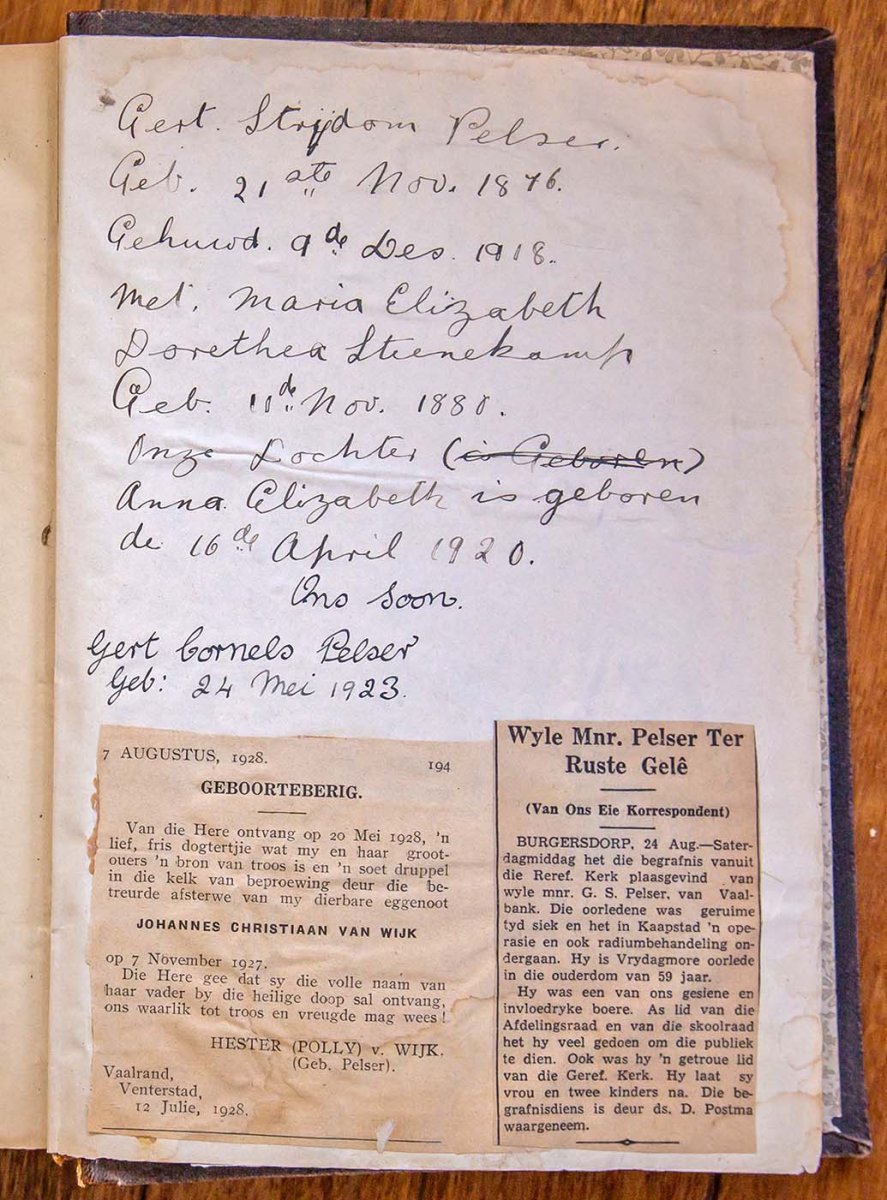 Gert. Strijdom Pelser.
Geb. 21ste Nov. 1876.
Gehuwd. 9de Des. 1918.
Met. Maria Elizabeth
Dorethea Steenekamp
Geb. 11de Nov. 1880.
Onze Dochter (is Geboren)
Anna Elizabeth is geboren
de 16de April 1920.
Ons soon.
Gert Cornels Pelser
Geb: 24 Mei 1923.
7 AUGUSTUS, 1928.
194
GEBOORTEBERIG.
Van die Here ontvang op 20 Mei 1928, 'n
lief, fris dogtertjie wat my en haar groot-
ouers 'n bron van troos is en 'n soet druppel
in die kelk van beproewing deur die be-
treurde afsterwe van my dierbare eggenoot
JOHANNES CHRISTIAAN VAN WIJK
op 7 November 1927.
Die Here gee dat sy die volle naam van
haar vader by die heilige doop sal ontvang,
ons waarlik tot troos en vreugde mag wees!
HESTER (POLLY) v. WIJK.
(Geb. Pelser).
Vaalrand,
Venterstad,
12 Julie, 1928.
Wyle Mnr. Pelser Ter
Ruste Gelê
(Van Ons Eie Korrespondent)
BURGERSDORP, 24 Aug.—Sater-
dagmiddag het die begrafnis vanuit
die Reref. Kerk plaasgevind van
wyle mnr. G. S. Pelser, van Vaal-
bank. Die oorledene was geruime
tyd siek en het in Kaapstad 'n ope-
rasie en ook radiumbehandeling on-
dergaan. Hy is Vrydagmore oorlede
in die ouderdom van 59 jaar.
Hy was een van ons gesiene en
invloedryke boere. As lid van die
Afdelingsraad en van die skoolraad
het hy veel gedoen om die publiek
te dien. Ook was hy 'n getroue lid
van die Geref. Kerk. Hy laat sy
vrou en twee kinders na. Die be-
grafnisdiens is deur ds. D. Postma
waargeneem.